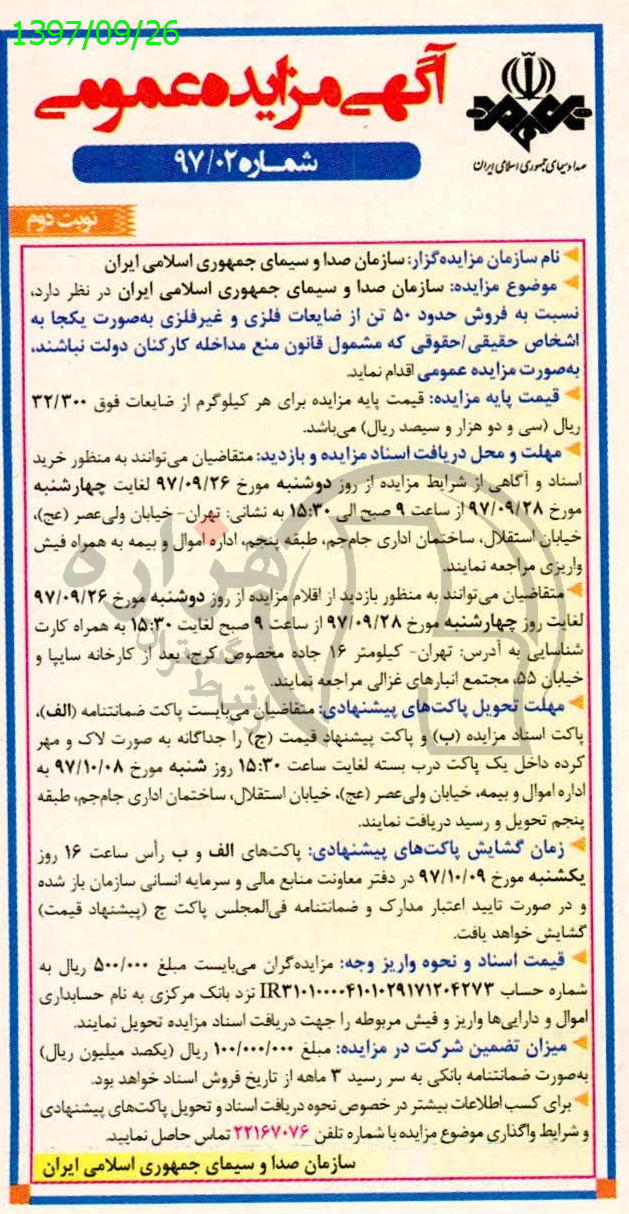 1397/09/26
آگهی مزایده عمومی
صدا و سیمای جمهوری اسلامی ایران
شماره ۹۷/۰۲
نوبت دوم
نام سازمان مزایده‌گزار: سازمان صدا و سیمای جمهوری اسلامی ایران
موضوع مزایده: سازمان صدا و سیمای جمهوری اسلامی ایران در نظر دارد،
نسبت به فروش حدود ۵۰ تن از ضایعات فلزی و غیرفلزی به‌صورت یکجا به
اشخاص حقیقی/حقوقی که مشمول قانون منع مداخله کارکنان دولت نباشند،
به‌صورت مزایده عمومی اقدام نماید.
قیمت پایه مزایده: قیمت پایه مزایده برای هر کیلوگرم از ضایعات فوق ۳۲/۳۰۰
ریال (سی و دو هزار و سیصد ریال) می‌باشد.
مهلت و محل دریافت اسناد مزایده و بازدید: متقاضیان می‌توانند به منظور خرید
اسناد و آگاهی از شرایط مزایده از روز دوشنبه مورخ ۹۷/۰۹/۲۶ لغایت چهارشنبه
مورخ ۹۷/۰۹/۲۸ از ساعت ۹ صبح الی ۱۵:۳۰ به نشانی: تهران- خیابان ولی‌عصر (عج)،
خیابان استقلال، ساختمان اداری جام‌جم، طبقه پنجم، اداره اموال و بیمه به همراه فیش
واریزی مراجعه نمایند.
متقاضیان می‌توانند به منظور بازدید از اقلام مزایده از روز دوشنبه مورخ ۹۷/۰۹/۲۶
لغایت روز چهارشنبه مورخ ۹۷/۰۹/۲۸ از ساعت ۹ صبح لغایت ۱۵:۳۰ به همراه کارت
شناسایی به آدرس: تهران- کیلومتر ۱۶ جاده مخصوص کرج، بعد از کارخانه سایپا و
خیابان ۵۵، مجتمع انبارهای غزالی مراجعه نمایند.
مهلت تحویل پاکت‌های پیشنهادی: متقاضیان می‌بایست پاکت ضمانتنامه (الف)،
پاکت اسناد مزایده (ب) و پاکت پیشنهاد قیمت (ج) را جداگانه به صورت لاک و مهر
کرده داخل یک پاکت درب بسته لغایت ساعت ۱۵:۳۰ روز شنبه مورخ ۹۷/۱۰/۰۸ به
اداره اموال و بیمه، خیابان ولی‌عصر (عج)، خیابان استقلال، ساختمان اداری جام‌جم، طبقه
پنجم تحویل و رسید دریافت نمایند.
زمان گشایش پاکت‌های پیشنهادی: پاکت‌های الف و ب رأس ساعت ۱۶ روز
یکشنبه مورخ ۹۷/۱۰/۰۹ در دفتر معاونت منابع مالی و سرمایه انسانی سازمان باز شده
و در صورت تایید اعتبار مدارک و ضمانتنامه فی‌المجلس پاکت ج (پیشنهاد قیمت)
گشایش خواهد یافت.
قیمت اسناد و نحوه واریز وجه: مزایده‌گران می‌بایست مبلغ ۵۰۰/۰۰۰ ریال به
شماره حساب IR۳۱۰۱۰۰۰۰۴۱۰۱۰۲۹۱۷۱۲۰۴۲۷۳ نزد بانک مرکزی به نام حسابداری
اموال و دارایی‌ها واریز و فیش مربوطه را جهت دریافت اسناد مزایده تحویل نمایند.
میزان تضمین شرکت در مزایده: مبلغ ۱۰۰/۰۰۰/۰۰۰ ریال (یکصد میلیون ریال)
به‌صورت ضمانتنامه بانکی به سر رسید ۳ ماهه از تاریخ فروش اسناد خواهد بود.
برای کسب اطلاعات بیشتر در خصوص نحوه دریافت اسناد و تحویل پاکت‌های پیشنهادی
و شرایط واگذاری موضوع مزایده با شماره تلفن ۲۲۱۶۷۰۷۶ تماس حاصل نمایید.
سازمان صدا و سیمای جمهوری اسلامی ایران
هزاره
گستران
ارتباط